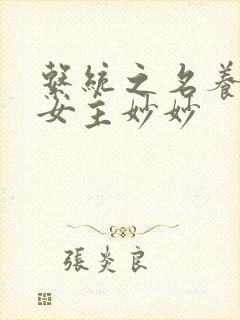 繫統之名養
女主妙妙
張炎良